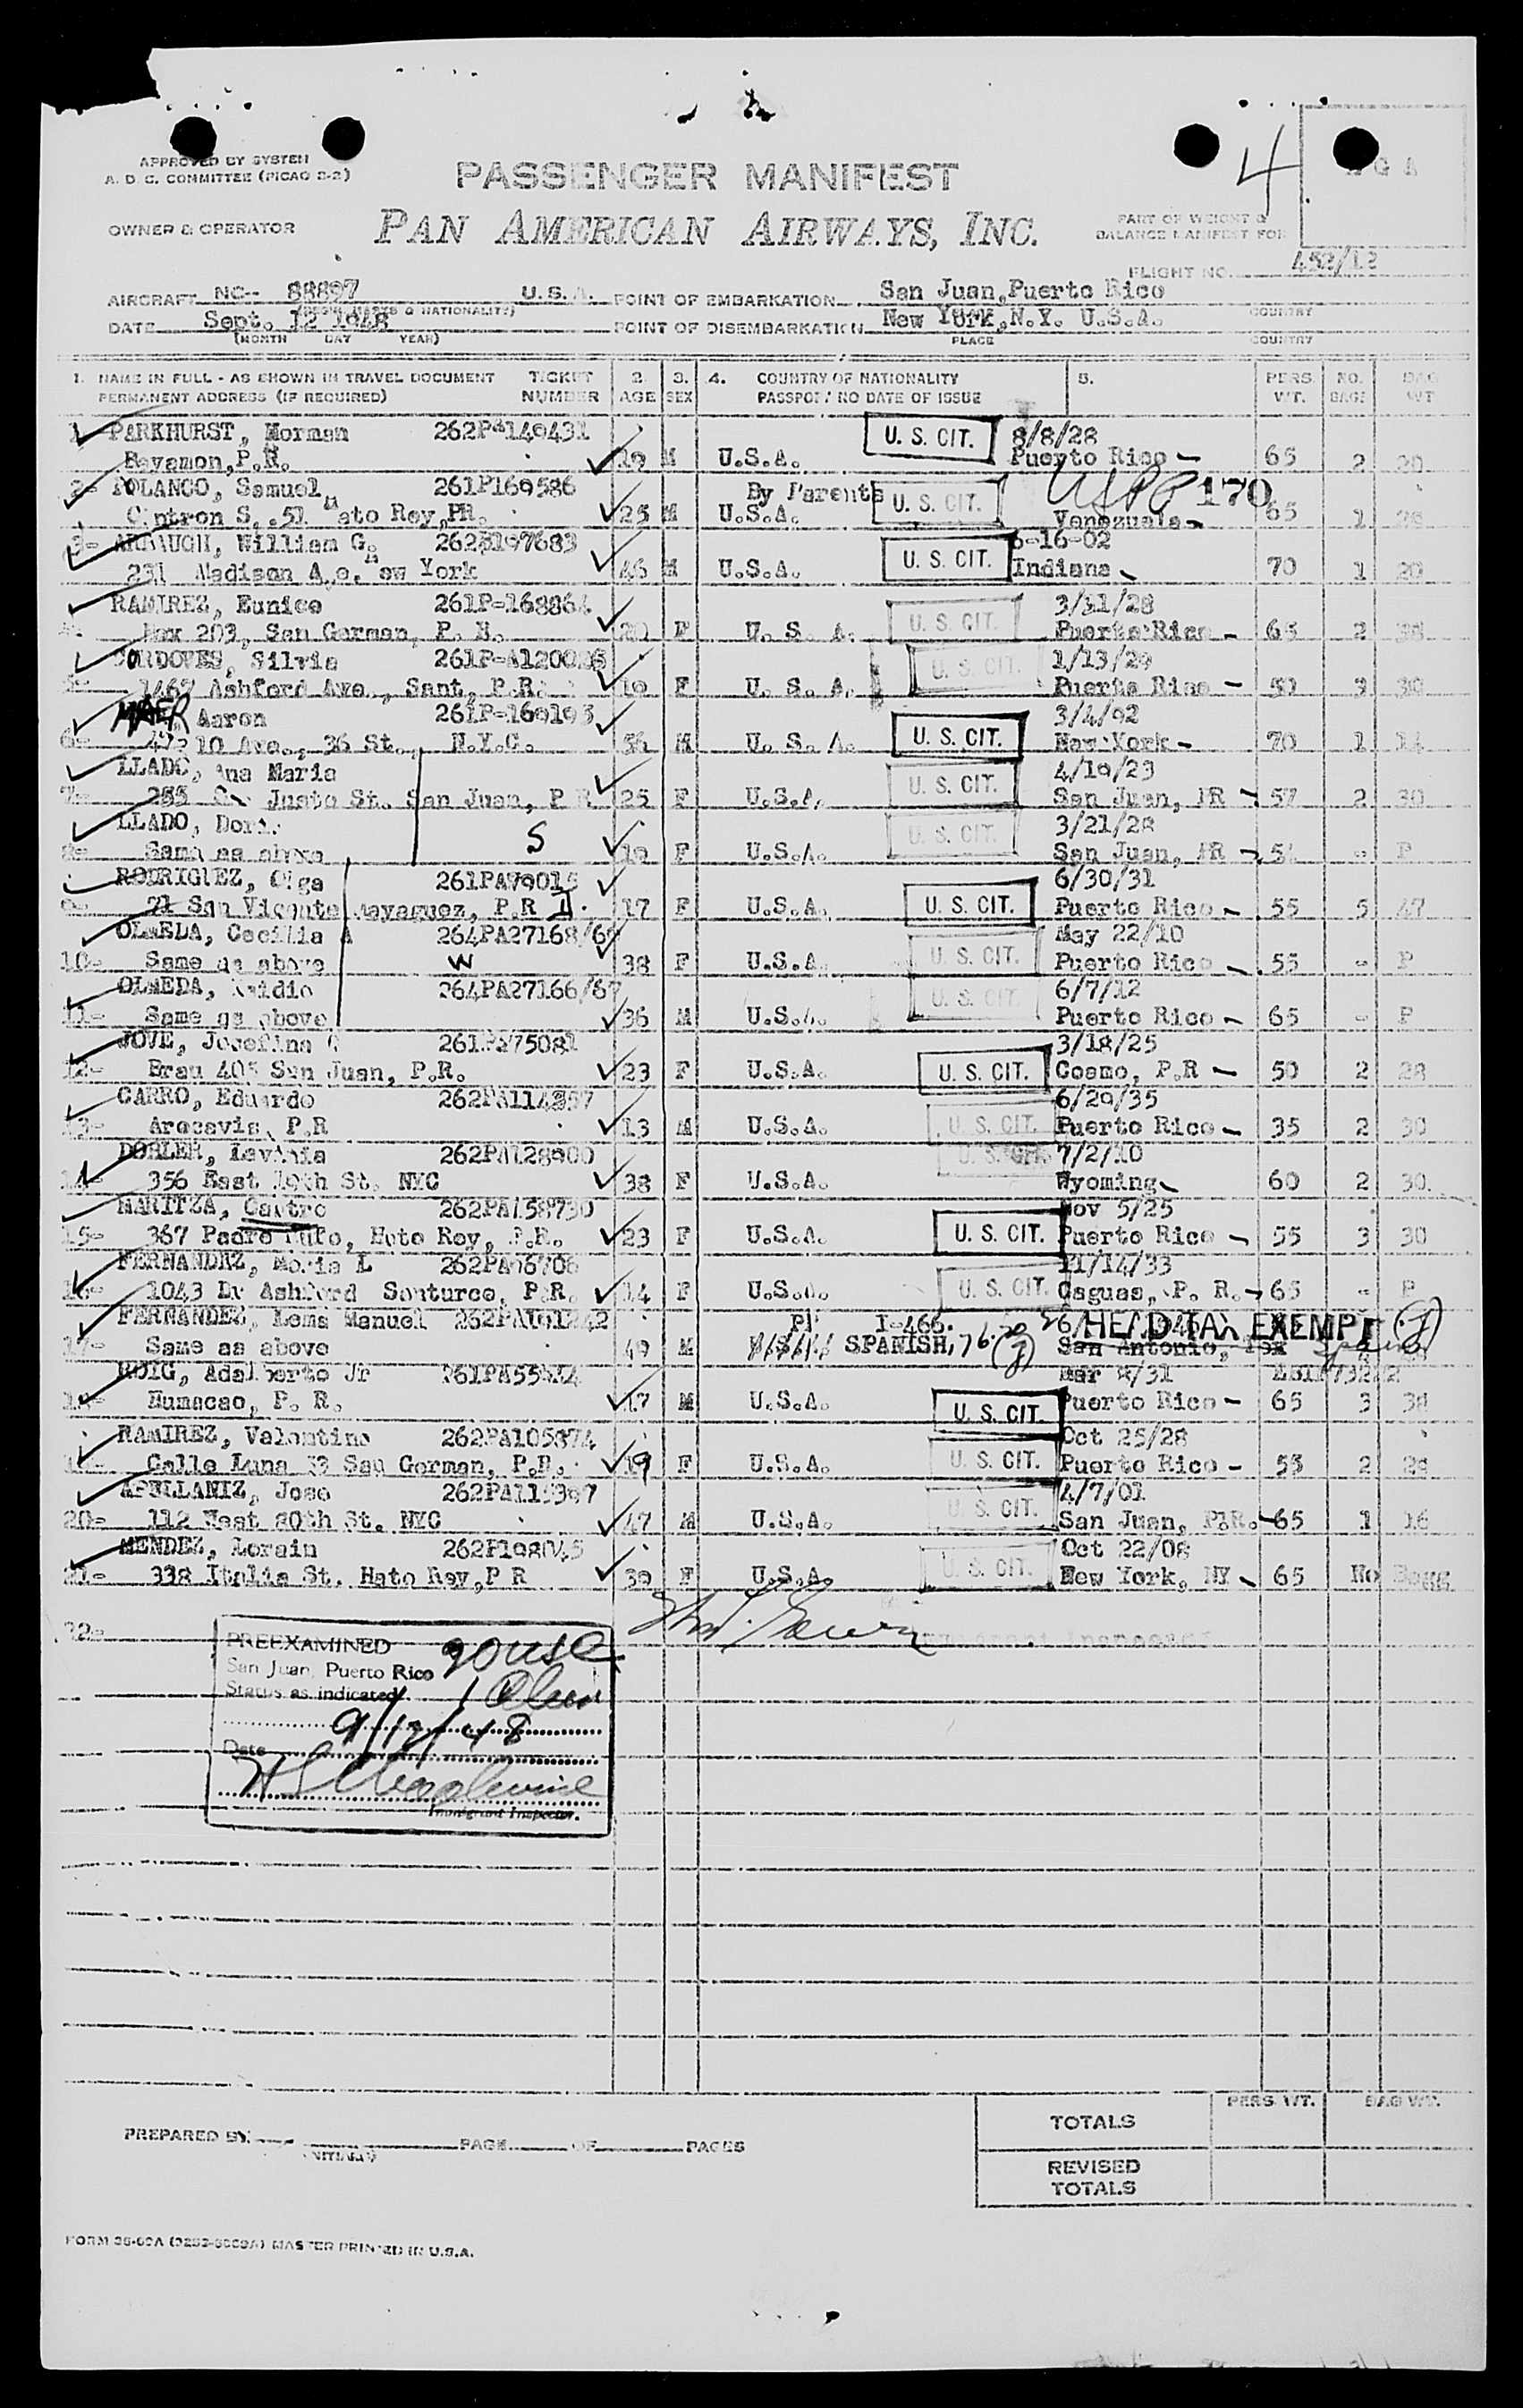 4
APPROVED BY SYSTEM
A. D. C. COMMITTEE (PICAO 2-2)
PASSENGER MANIFEST
OWNER & OPERATOR
PAN AMERICAN AIRWAYS, INC.
PART OF WEIGHT &
BALANCE MANIFEST FOR
FLIGHT NO. 452/12
AIRCRAFT NC-- 88897 U.S.A. POINT OF EMBARKATION San Juan,Puerto Rico
COUNTRY
DATE Sept. 12 1948 POINT OF DISEMBARKATION New York,N.Y. U.S.A.
(MONTH DAY YEAR) PLACE COUNTRY
1. NAME IN FULL - AS SHOWN IN TRAVEL DOCUMENT TICKET 2. 3. 4. COUNTRY OF NATIONALITY 5. PERS. NO. BAG
PERMANENT ADDRESS (IF REQUIRED) NUMBER AGE SEX PASSPORT NO DATE OF ISSUE WT. BAGS WT
1- PARKHURST, Norman 262PA149431 U. S. CIT. 8/8/28
Bayamon,P.R. 19 M U.S.A. Puerto Rico - 65 2 20
2- POLANCO, Samuel 261P169586 By Parents U. S. CIT. USPP 170
Cintron S. 51 Hato Rey,PR. 25 M U.S.A. Venezuela- 65 1 26
3- William G. U. S. CIT. 6-16-02
231 Madison Ave. New York 46 M U.S.A. Indiana 70 1 20
4- RAMIREZ, Eunice 261P-168864 U. S. CIT. 3/11/28
Box 203, San German, P. R. 20 F U. S. A. Puerto Rico - 65 2 38
5- CORDOVES, Silvia U. S. CIT. 1/13/29
1467 Ashford Ave., Sant, P.R. 19 F U. S. A. Puerto Rico - 50 3 30
6- Aaron 261P-169193 3/4/92
10 Ave., 36 St., N.Y.C. 56 M U. S. A. U. S. CIT. New York - 70 1 14
7- LLADO, Ana Maria U. S. CIT. 4/19/23
255 Justo St. San Juan, P R 25 F U.S.A. San Juan, PR - 57 2 30
8- LLADO, S U. S. CIT. 3/21/28
Same as above 19 F U.S.A. San Juan, PR - P
9- RODRIGUEZ, Olga 261PA79015 6/30/31
71 San Vicente Mayaguez, P.R II. 17 F U.S.A. U. S. CIT. Puerto Rico - 55 5 47
10- OLMEDA, Cecilia A 264PA27168/69 May 22/10
Same as above W 38 F U.S.A. U. S. CIT. Puerto Rico - 55 - P
11- OLMEDA, 264PA27166/67 U. S. CIT. 6/7/12
Same as above 36 M U.S.A. Puerto Rico - 65 - P
12- JOVE, Josefina 261PA75081 3/18/25
Brau 405 San Juan, P.R. 23 F U.S.A. U. S. CIT. Coamo, P.R - 50 2 28
13- CARRO, Eduardo 262PA114357 6/29/35
P.R 13 M U.S.A. U. S. CIT. Puerto Rico - 35 2 30
14- DOBLER, Lavinia 262PA128900 U. S. CIT. 7/2/10
356 East 19th St. NYC 38 F U.S.A. Wyoming 60 2 30.
15- MARITZA, Castro 262PA158730 Nov 5/25
367 Padre Rufo, Hato Rey, P.R. 23 F U.S.A. U. S. CIT. Puerto Rico - 55 3 30
16- FERNANDEZ, Maria L 262PA66706 11/14/33
1043 Dr Ashford Santurce, P.R. 14 F U.S.A. U. S. CIT. Caguas, P. R. - 65 - P
17- FERNANDEZ, Manuel PV I-466. HEAD TAX EXEMPT
Same as above 49 M SPANISH, San Antonio,
18- ROIG, Adalberto Jr Mar 8/31
Humacao, P. R. 17 M U.S.A. U. S. CIT. Puerto Rico - 65 3 38
19- RAMIREZ, Valentina 262PA105874 Oct 25/28
Calle Luna 33 San German, P.R. 19 F U.S.A. U. S. CIT. Puerto Rico - 55 2 29
20- APELLANIZ, Jose 262PA115397 U. S. CIT. 4/7/01
112 West 80th St. NYC 47 M U.S.A. San Juan, P.R. - 65 1 16
21- MENDEZ, Lorain 262P198045 Oct 22/08
338 Italia St. Hato Rey,P R 39 F U.S.A. U. S. CIT. New York, NY - 65 No Bagg
22-
Immigrant Inspector
PREEXAMINED
San Juan, Puerto Rico
Status as indicated
9/12/48
Date
Immigrant Inspector.
PERS. WT. BAG WT.
TOTALS
PREPARED BY (INITIALS) PAGE OF PAGES
REVISED
TOTALS
FORM 36-60A MASTER PRINTED IN U.S.A.